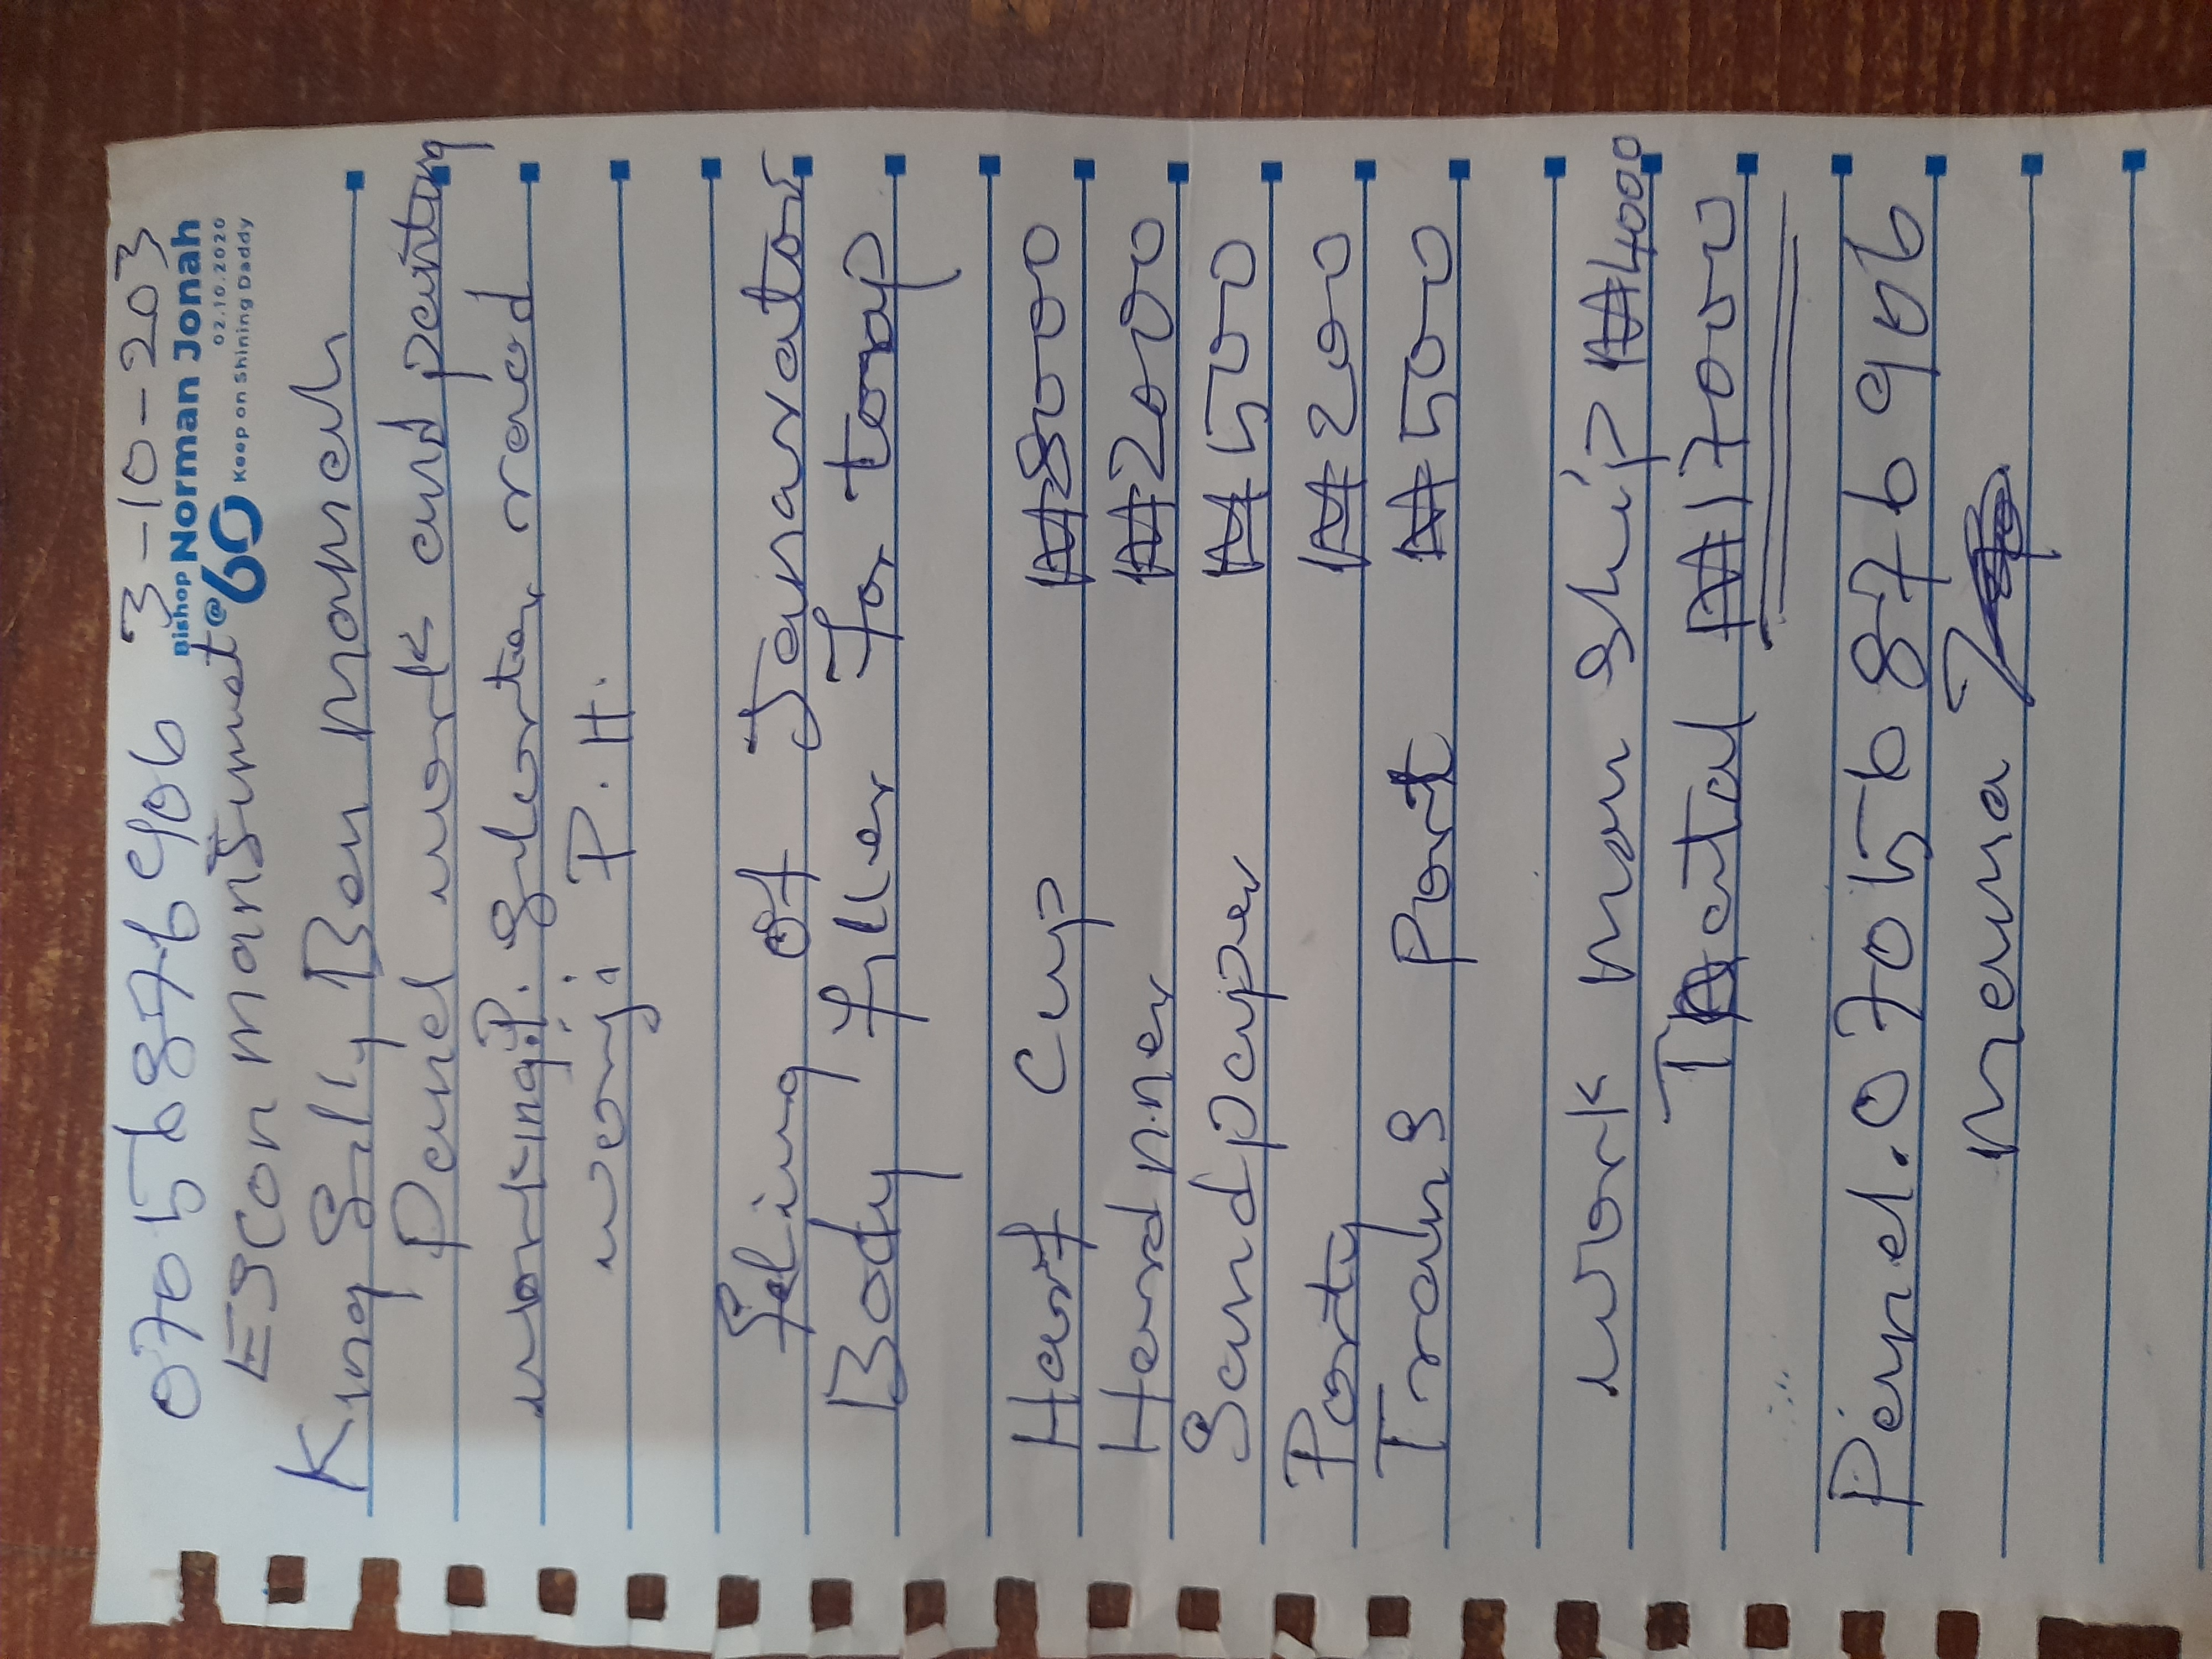 07056876906 3-10-203
Bishop Norman Jonah
@60 02.10.2020
Keep on Shining Daddy
EScon
King Silly Ben
Panel work and panting
working.P. road
woji P.H.
feling of Janarator
Body filler For
Harf Cup ₦8000
Hardnner ₦2000
Sandpaper ₦500
Porty ₦200
Trans port ₦500
work man ship ₦4000
₦17000
Panel.07056876906